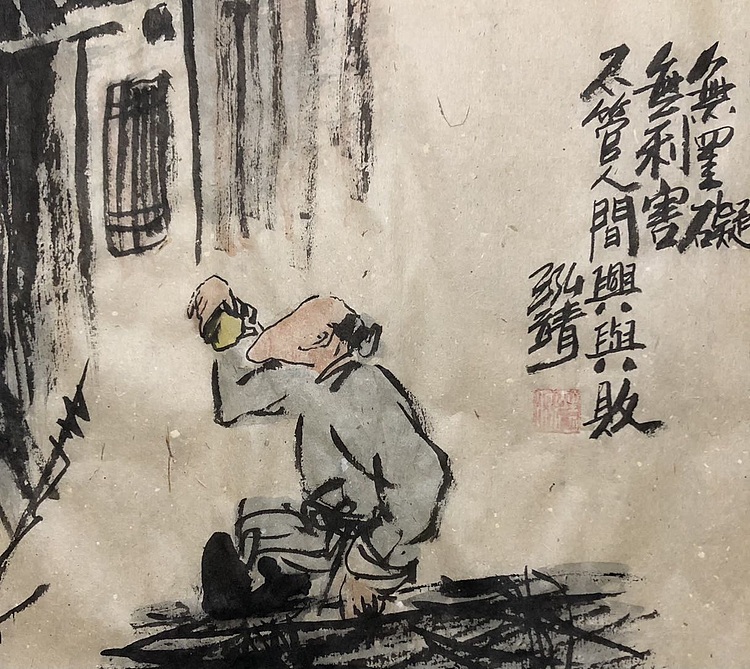 無罣礙
無利害
不管人間興與敗